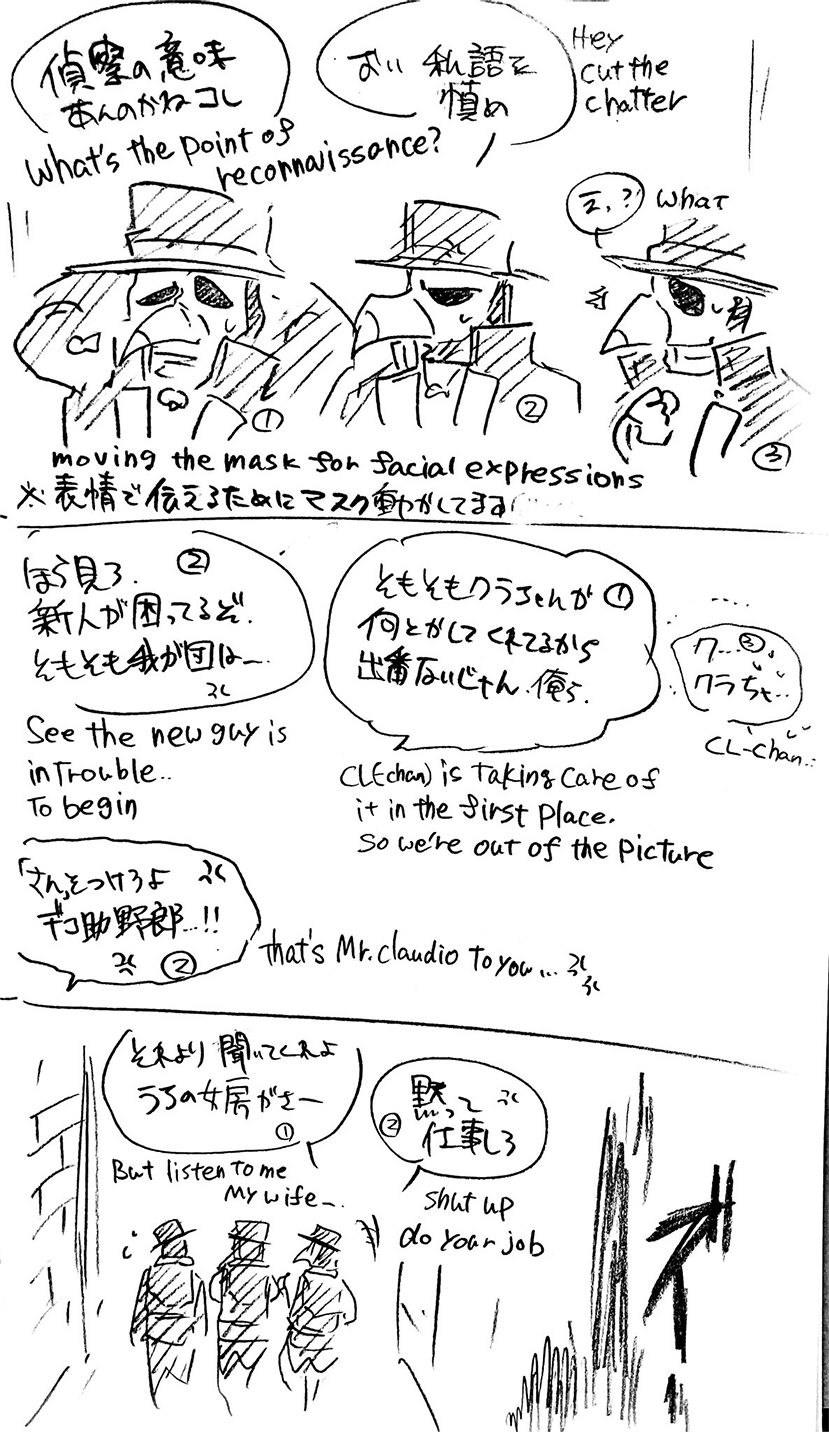 偵察の意味
あんのかねコレ
What's the point of
reconnaissance?
おい 私語を
慎め
Hey
cut the
chatter
え,?
what
①
②
③
moving the mask for facial expressions
※表情で伝えるためにマスク動かしてます
ほら見ろ. ②
新人が困ってるぞ.
そもそも我が団は一…
See the new guy is
in trouble..
To begin
そもそもクラちゃんが ①
何とかしてくれてるから
出番ないじゃん.俺ら.
CL(-chan) is taking care of
it in the first place.
so we're out of the picture
ク…③
クラちゃ…
CL-chan..
「さん」をつけろよ
デコ助野郎…!!
②
that's Mr.claudio to you...
それより 聞いてくれよ
うちの女房がさー
①
But listen to me
My wife—..
黙って
② 仕事しろ
shut up
do your job